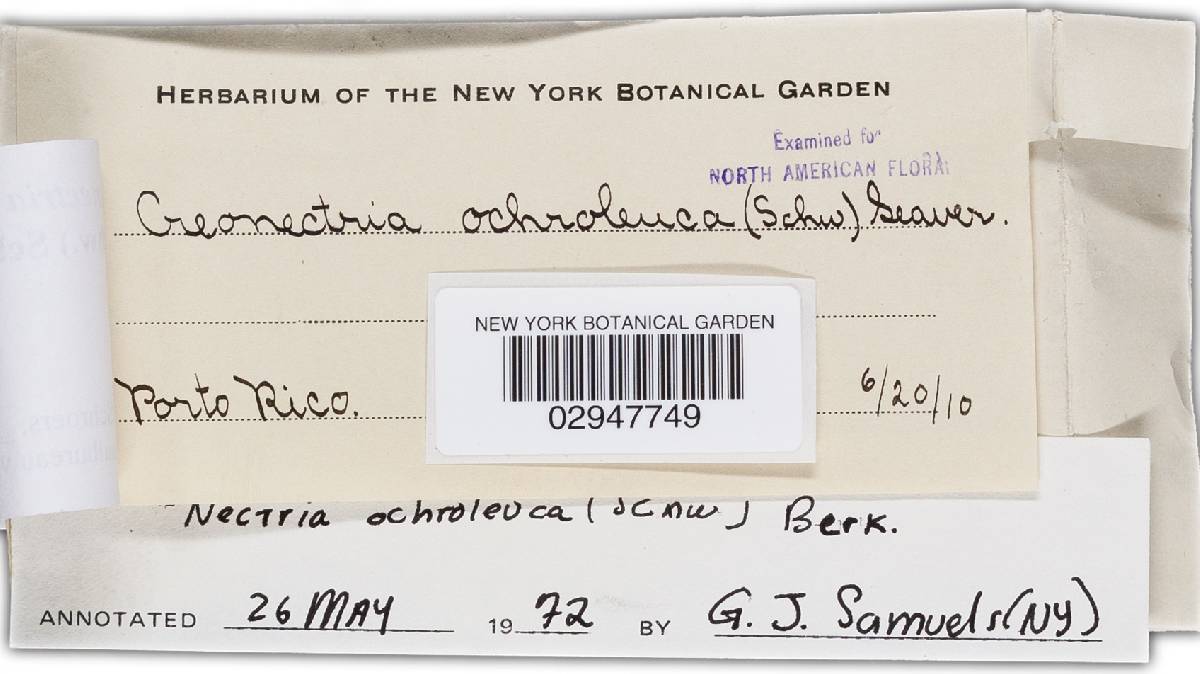 HERBARIUM OF THE NEW YORK BOTANICAL GARDEN
Examined for
NORTH AMERICAN FLORA
Creonectria ochroleuca (Schw) Seaver.
NEW YORK BOTANICAL GARDEN
02947749
Porto Rico.
6/20/10
Nectria ochroleuca (Schw) Berk.
ANNOTATED 26 MAY 1972 BY G. J. Samuels (NY)